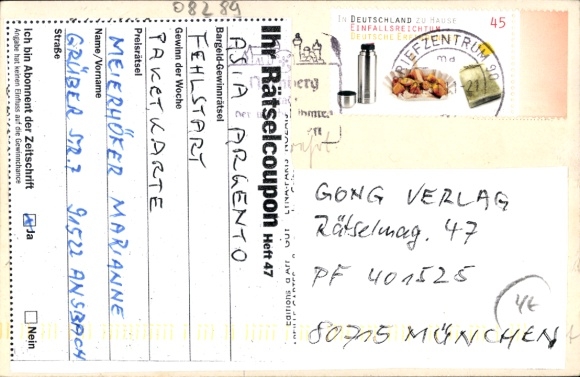 08289
Ihr Rätselcoupon Heft 47
Bargeld-Gewinnrätsel
ASIA ARGENTO
FEHLSTART
Gewinn der Woche
PAKETKARTE
Preisrätsel
MEIERHÖFER MARIANNE
Name/Vorname
GRUBER STR. 7 91522 ANSBACH
Straße
Ich bin Abonnent der Zeitschrift
Angabe hat keinen Einfluss auf die Gewinnchance
Ja
Nein
IN DEUTSCHLAND ZU HAUSE
EINFALLSREICHTUM
45
BRIEFZENTRUM 90
GONG VERLAG
Rätselmag. 47
PF 401525
80715 MÜNCHEN